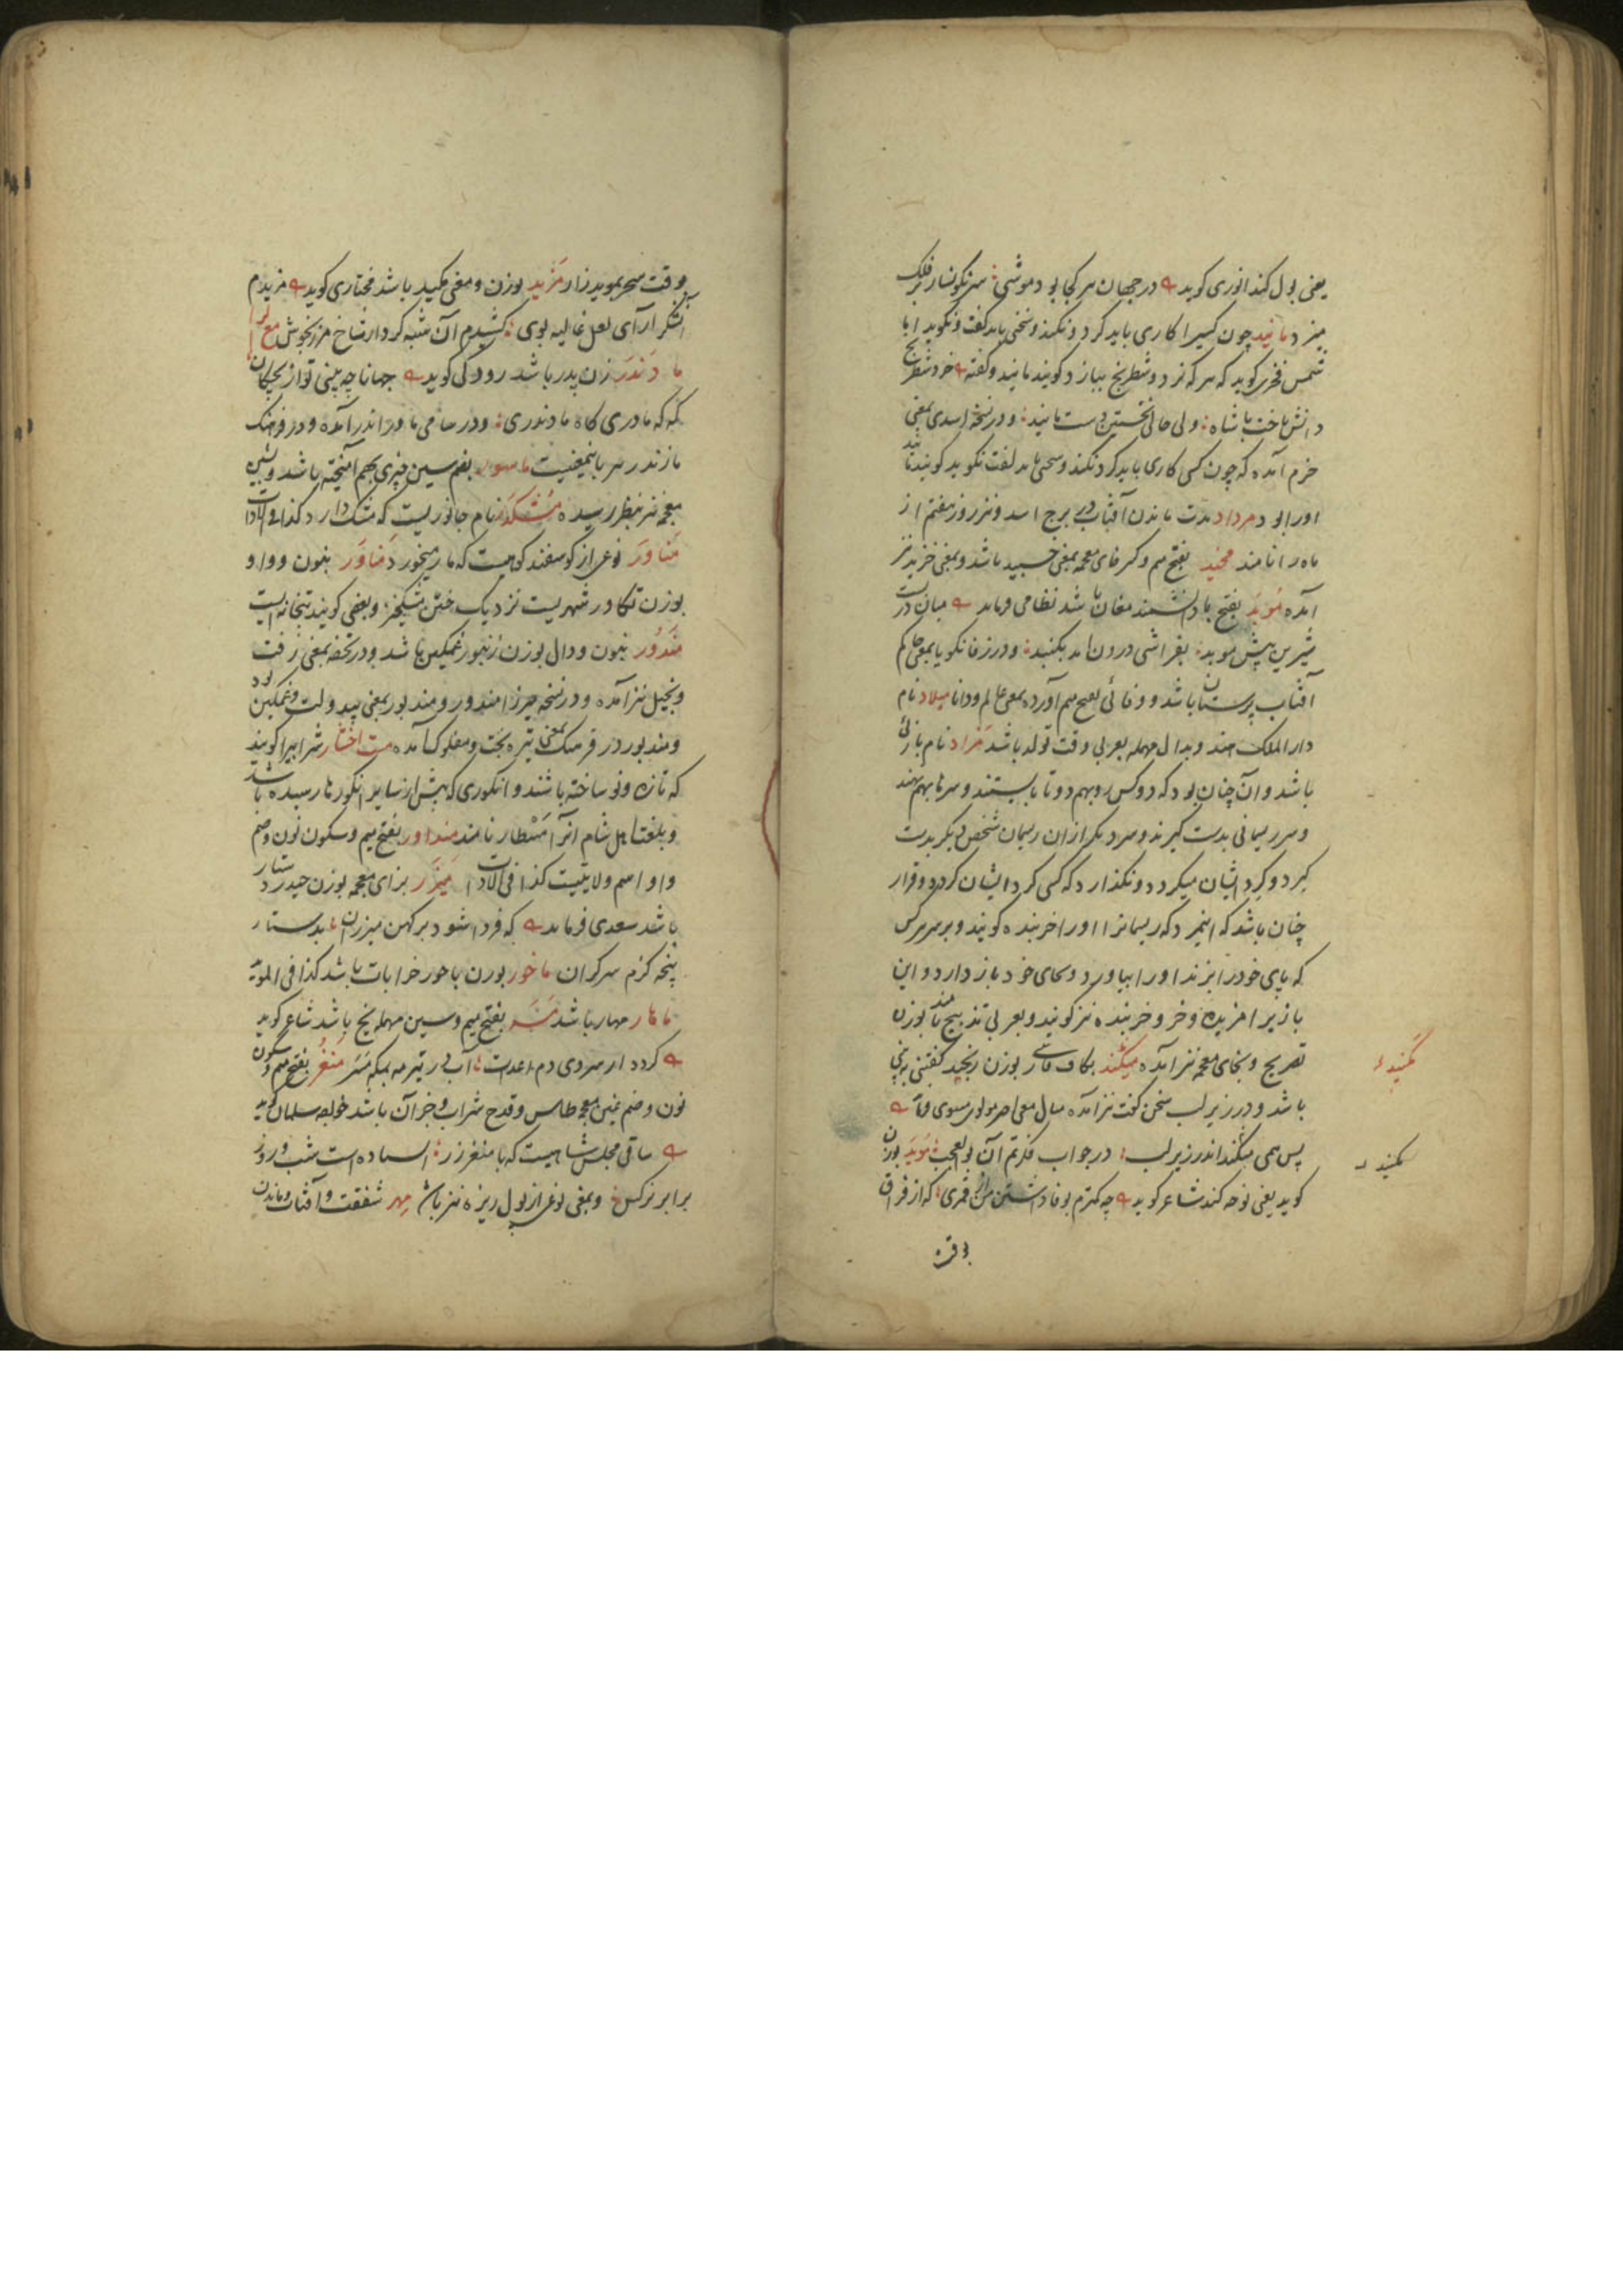 یعنی بول کند انوری کوید در جهان هر کجا بود موشی سرنکونسار بر فلک
میزد مانید چون کسی را کاری باید کرد و نکند و سخنی باید کفت و نکوید ایا
شمس فخری کوید که هر که نرد و شطرنج ببازد کویند مانید و کفته خرد شطرنج
دانش باخت با شاه ولی حالی نخستین دست مانید و در نسخه اسدی بمعنی
جرم آمده که چون کسی کاری باید کرد نکند و سخنی باید کفت نکوید کویند مانید
اورا بود مرداد مدت ماندن آفتاب در برج اسد و نیز روز هفتم از
ماه را نامند مخید بفتح میم و کسر خای معجمه بمعنی جسبید باشد و بمعنی خزید نیز
آمده موبد بفتح با دانشمند مغان باشد نظامی فرماید میان دربست
شیرین پیش موبد بفراشی درون آمد بکنبد و در زفانکویا بمعنی حاکم
آفتاب پرستان باشد و وفائی بضم میم آورده بمعنی عالم و دانا میلاد نام
دار الملک هند و بدال مهمله بعربی وقت تولد باشد مزاد نام بازئی
باشد و آن چنان بود که دو کس رو بهم دو تا بایستند و سرها بهم نهند
و سر ریسمانی بدست کیرند و مرد دیکر از آن ریسمان شخص دیکر بدست
کیرد و کرد ایشان میکردد و نکذارد که کسی کرد ایشان کردد و قرار
چنان باشد که اینمرد که ریسمانرا اورا خربنده کویند و بر سر هر کس
که پای خود را بزند اورا بیاورد و بجای خود باز دارد و این
بازیرا مزیده و خر و خربنده نیز کویند و بعربی تدبیح نامند بوزن
تصریح و بخای معجمه نیز آمده میکند بکاف فارسی بوزن رنجید کفتنی به پنهانی
باشد و در زیر لب سخن کفت نیز آمده مثال معنی آخر مولوی معنوی فرماید
پس همی میکند اندر زیر لب در جواب فکرتم آن بوالعجب موید بوزن
کوید یعنی نوحه کند شاعر کوید چه کنم بوفا داشتن من از قمری که از فراق
وقت سحر بموید زار مزید بوزن و معنی مکید باشد مختاری کوید مزیدم
آن شکرآرای لعل غالیه بوی کشیدم آن شبه کردار شاخ مرزنجوش مع الراء
مادندر زن پدر باشد رودکی کوید جهانا چه بینی تو از بچکان
که که مادری کاه مادندری و در سامی مادر اندر آمده و در فرهنک
مازندر هر باینمعنیست ماسور بضم سین چیزی بهم آمیخته باشد و بشین
معجمه نیز بنظر رسیده مشکدر نام جانوریست که مشک دارد کذا فی الادات
مناور نوعی از کوسفند کوهیست که مار میخورد مناور بنون و واو
بوزن تکاور شهریست نزدیک ختن مشکخیز و بعضی کویند بتخانه ایست
مندور بنون و دال بوزن زنبور غمکین باشد و در تحفه بمعنی زفت
و بخیل نیز آمده و در نسخه میرزا مندور و مند بور بمعنی بیدولت و غمکین بود
و مندبور در فرهنک بمعنی تیره بخت و مفلوک آمده مست افشار شرابیرا کویند
که تازه و نو ساخته باشند و انکوری که پیش از سایر انکورها رسیده باشد
و بلغت اهل شام آنرا مسطار نامند منداور بفتح میم و سکون نون و ضم
واو اسم ولایتیست کذا فی الادات میزر بزای معجمه بوزن حیدر دستار
باشد سعدی فرماید که فردا شود بر کهن میزران بدستار
پنجه کزم سرکران ماخور بوزن باحور خرابات باشد کذا فی المؤید
ماهار مهار باشد مسر بفتح میم و سین مهمله یخ باشد شاعر کوید
کرده از سردی دم اعدات آب در تیر مه بمکه مسر منغر بفتح میم و سکون
نون و ضم غین معجمه طاس و قدح شراب و جز آن باشد خواجه سلمان کوید
ساقی مجلس شاهیست که با منغر زر ایستاده است شب و روز
برابر نرکس و بمعنی نوعی از پول ریزه نیز باشد مهر شفقت و آفتاب و ماندن
مکنید
مکیند
وقت